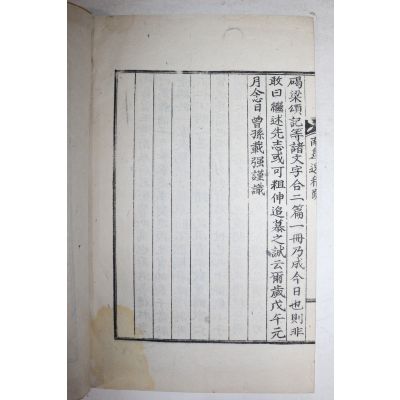 碣梁頌記等諸文字合二篇一冊乃成今日也則非
敢曰繼述先志或可粗伸追慕之誠云爾歲戊午元
月念日 曾孫載强謹識